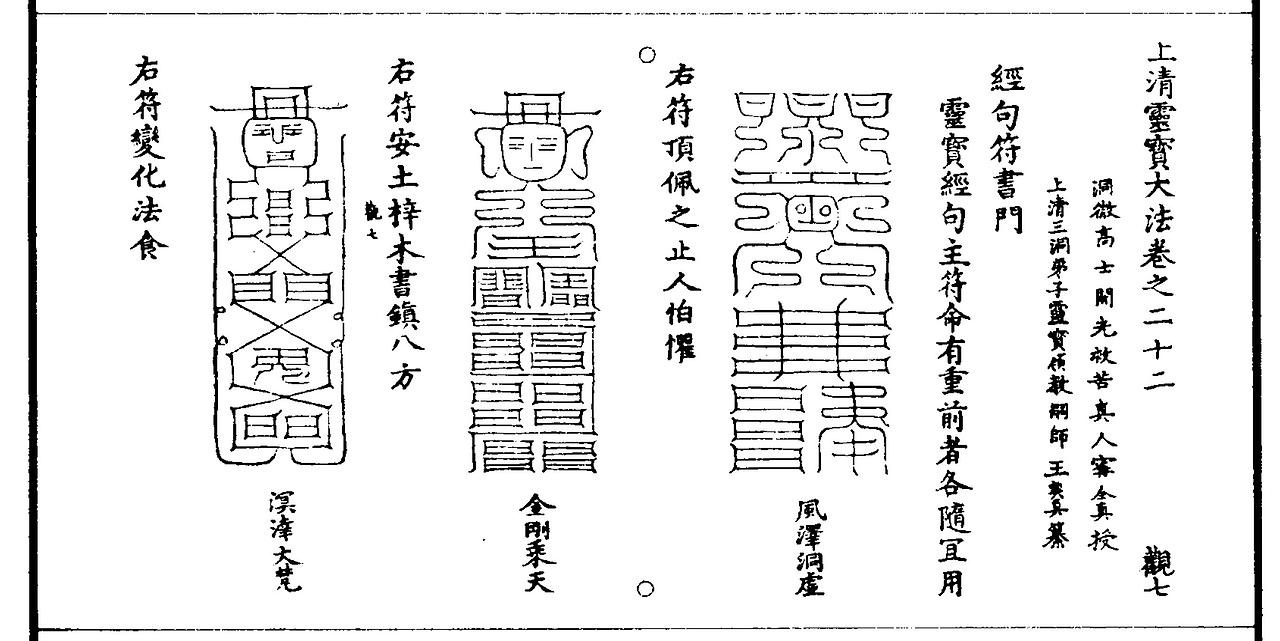 上清靈寶大法卷之二十二
觀七
洞微高士開光救苦真人甯全真授
上清三洞弟子靈寶領教嗣師王契真纂
經句符書門
靈寶經句主符命有重前者各隨冝用
風澤洞虛
右符頂佩之止人怕懼
金剛乘天
右符安土梓木書鎮八方
觀七
溟涬大梵
右符變化法食